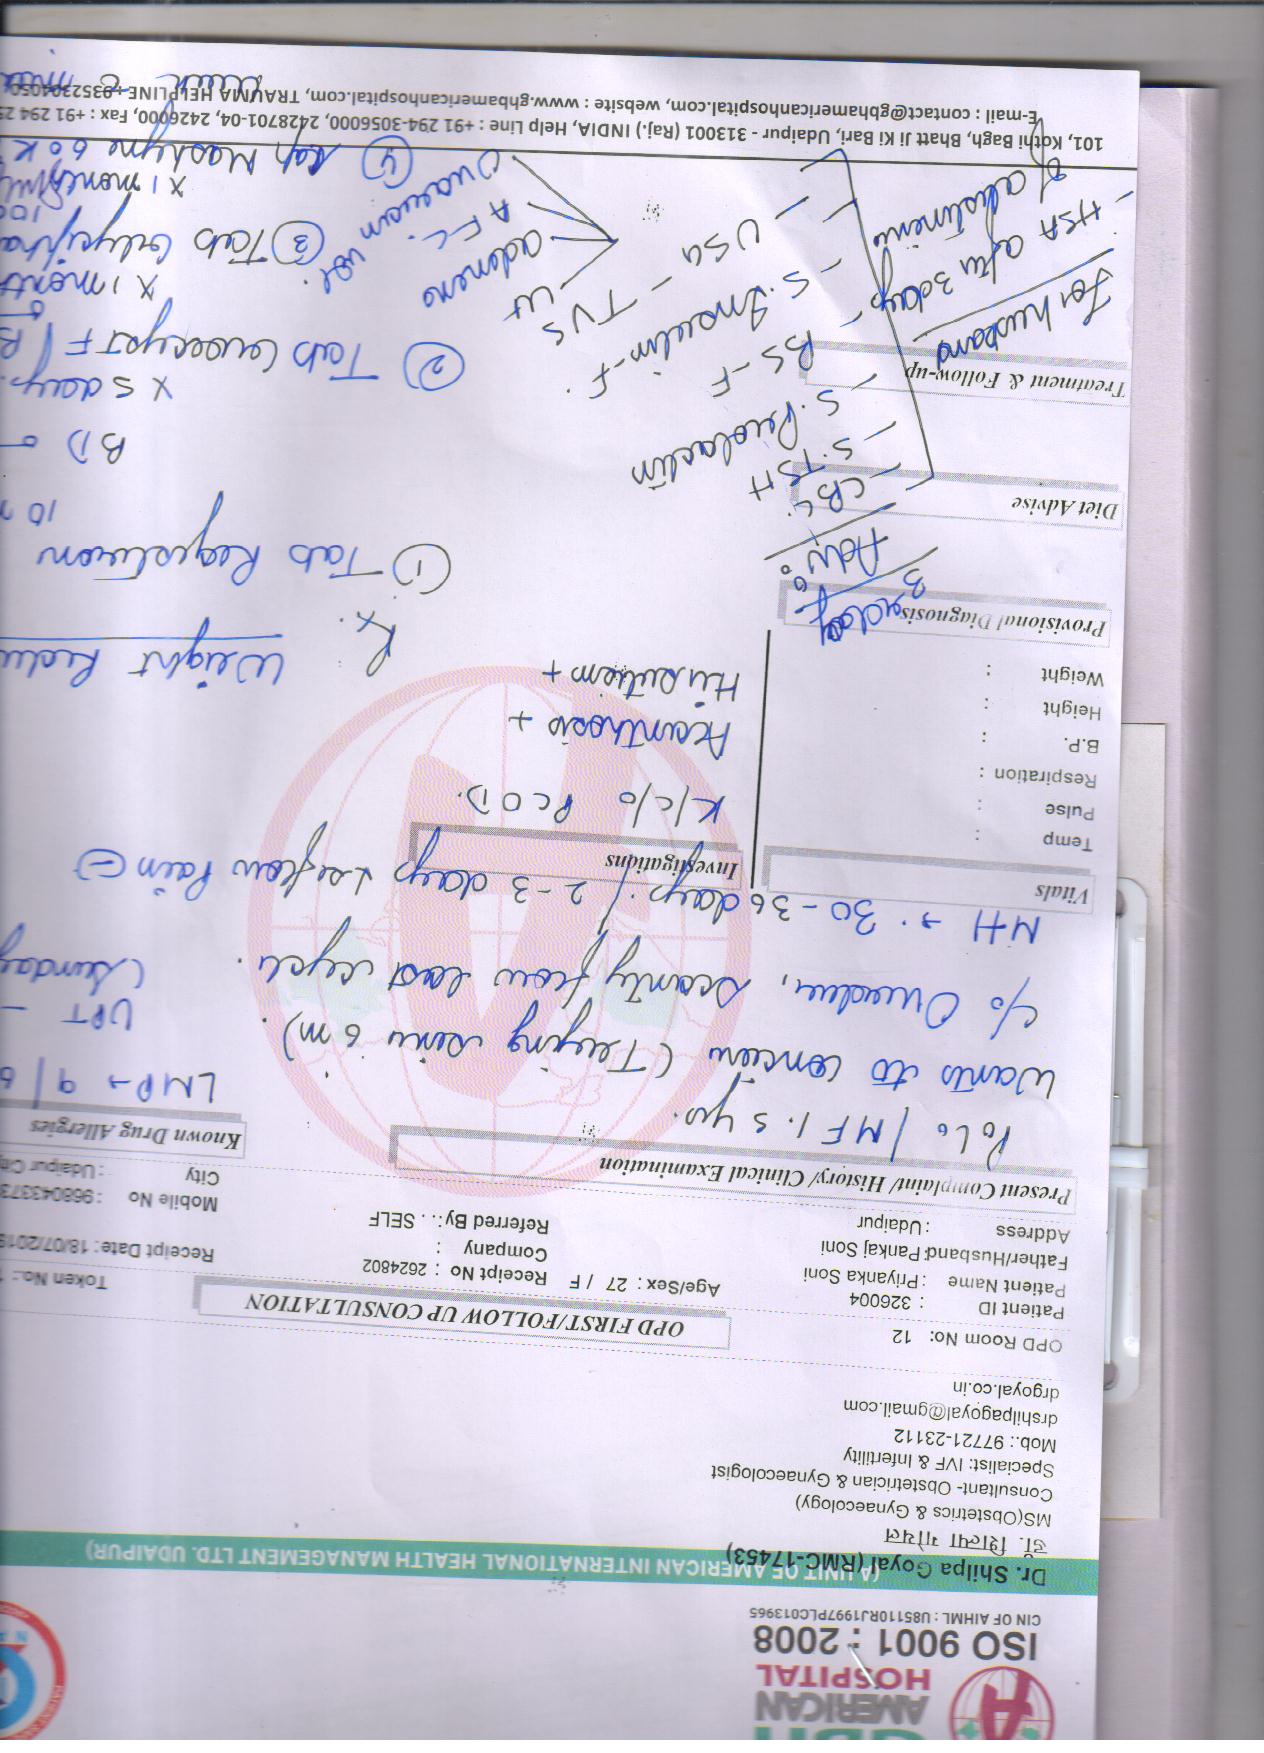 GBH
AMERICAN
HOSPITAL
ISO 9001 : 2008
CIN OF AIHML : U85110RJ1997PLC013965
(A UNIT OF AMERICAN INTERNATIONAL HEALTH MANAGEMENT LTD. UDAIPUR)
Dr. Shilpa Goyal (RMC-17453)
डॉ. शिल्पा गोयल
MS(Obstetrics & Gynaecology)
Consultant- Obstetrician & Gynaecologist
Specialist: IVF & Infertility
Mob.: 97721-23112
drshilpagoyal@gmail.com
drgoyal.co.in
OPD Room No: 12
OPD FIRST/FOLLOW UP CONSULTATION
Token No.:
Patient ID : 326004
Patient Name : Priyanka Soni
Age/Sex : 27 / F
Receipt No : 2624802
Receipt Date: 18/07/2019
Father/Husband: Pankaj Soni
Company :
Mobile No : 968043373
Address : Udaipur
Referred By: . . SELF
City : Udaipur
Present Complaint/ History/ Clinical Examination
Known Drug Allergies
P0L0 / MF 1.5 yrs.
LMP → 9/6
Wants to conceive (Trying since 6 m).
UPT -
c/o Overdue, scanty flow last cycle.
(Sunday
MH → 30-36 days / 2-3 days flow Pain
Vitals
Investigations
Temp :
Pulse :
Respiration :
B.P. :
Height :
Weight :
K/c/o PCOD.
Acanthosis +
Hirsutism +
Weight
Provisional Diagnosis
Rx.
Adv:
① Tab Regestrone
10
BD
x 5 days
CBC
S. TSH
S. Prolactin
BS-F
S. Insulin-F.
USG - TVS
Ut
adnexa
AFC.
Ovarian vol
Diet Advise
② Tab F
x 1 month
Treatment & Follow-up
For husband
- HSA after 3 days
of abstinence
③ Tab
x 1 month
④ Cap 60K
101, Kothi Bagh, Bhatt Ji Ki Bari, Udaipur - 313001 (Raj.) INDIA, Help Line : +91 294-3056000, 2428701-04, 2426000, Fax : +91 294
E-mail : contact@gbhamericanhospital.com, website : www.gbhamericanhospital.com, TRAUMA HELPLINE : 9352304050